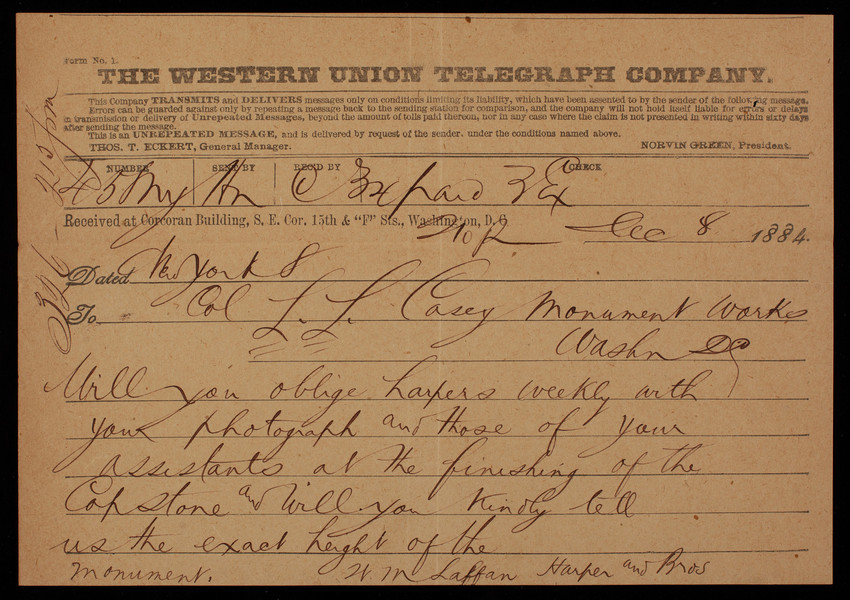 Form No. 1.
THE WESTERN UNION TELEGRAPH COMPANY.
This Company TRANSMITS and DELIVERS messages only on conditions limiting its liability, which have been assented to by the sender of the following message.
Errors can be guarded against only by repeating a message back to the sending station for comparison, and the company will not hold itself liable for errors or delays
in transmission or delivery of Unrepeated Messages, beyond the amount of tolls paid thereon, nor in any case where the claim is not presented in writing within sixty days
after sending the message.
This is an UNREPEATED MESSAGE, and is delivered by request of the sender, under the conditions named above.
THOS. T. ECKERT, General Manager. NORVIN GREEN, President.
NUMBER SENT BY REC'D BY CHECK
45 Ny paid
Received at Corcoran Building, S. E. Cor. 15th & "F" Sts., Washington, D. C.
Dec 8 1884.
Dated New York 8
To Col L. L. Casey Monument Works
Washn DC
Will you oblige harpers weekly with
your photograph and those of your
assistants at the finishing of the
Capstone and Will you Kindly tell
us the exact height of the
monument. W M Laffan Harper and Bros